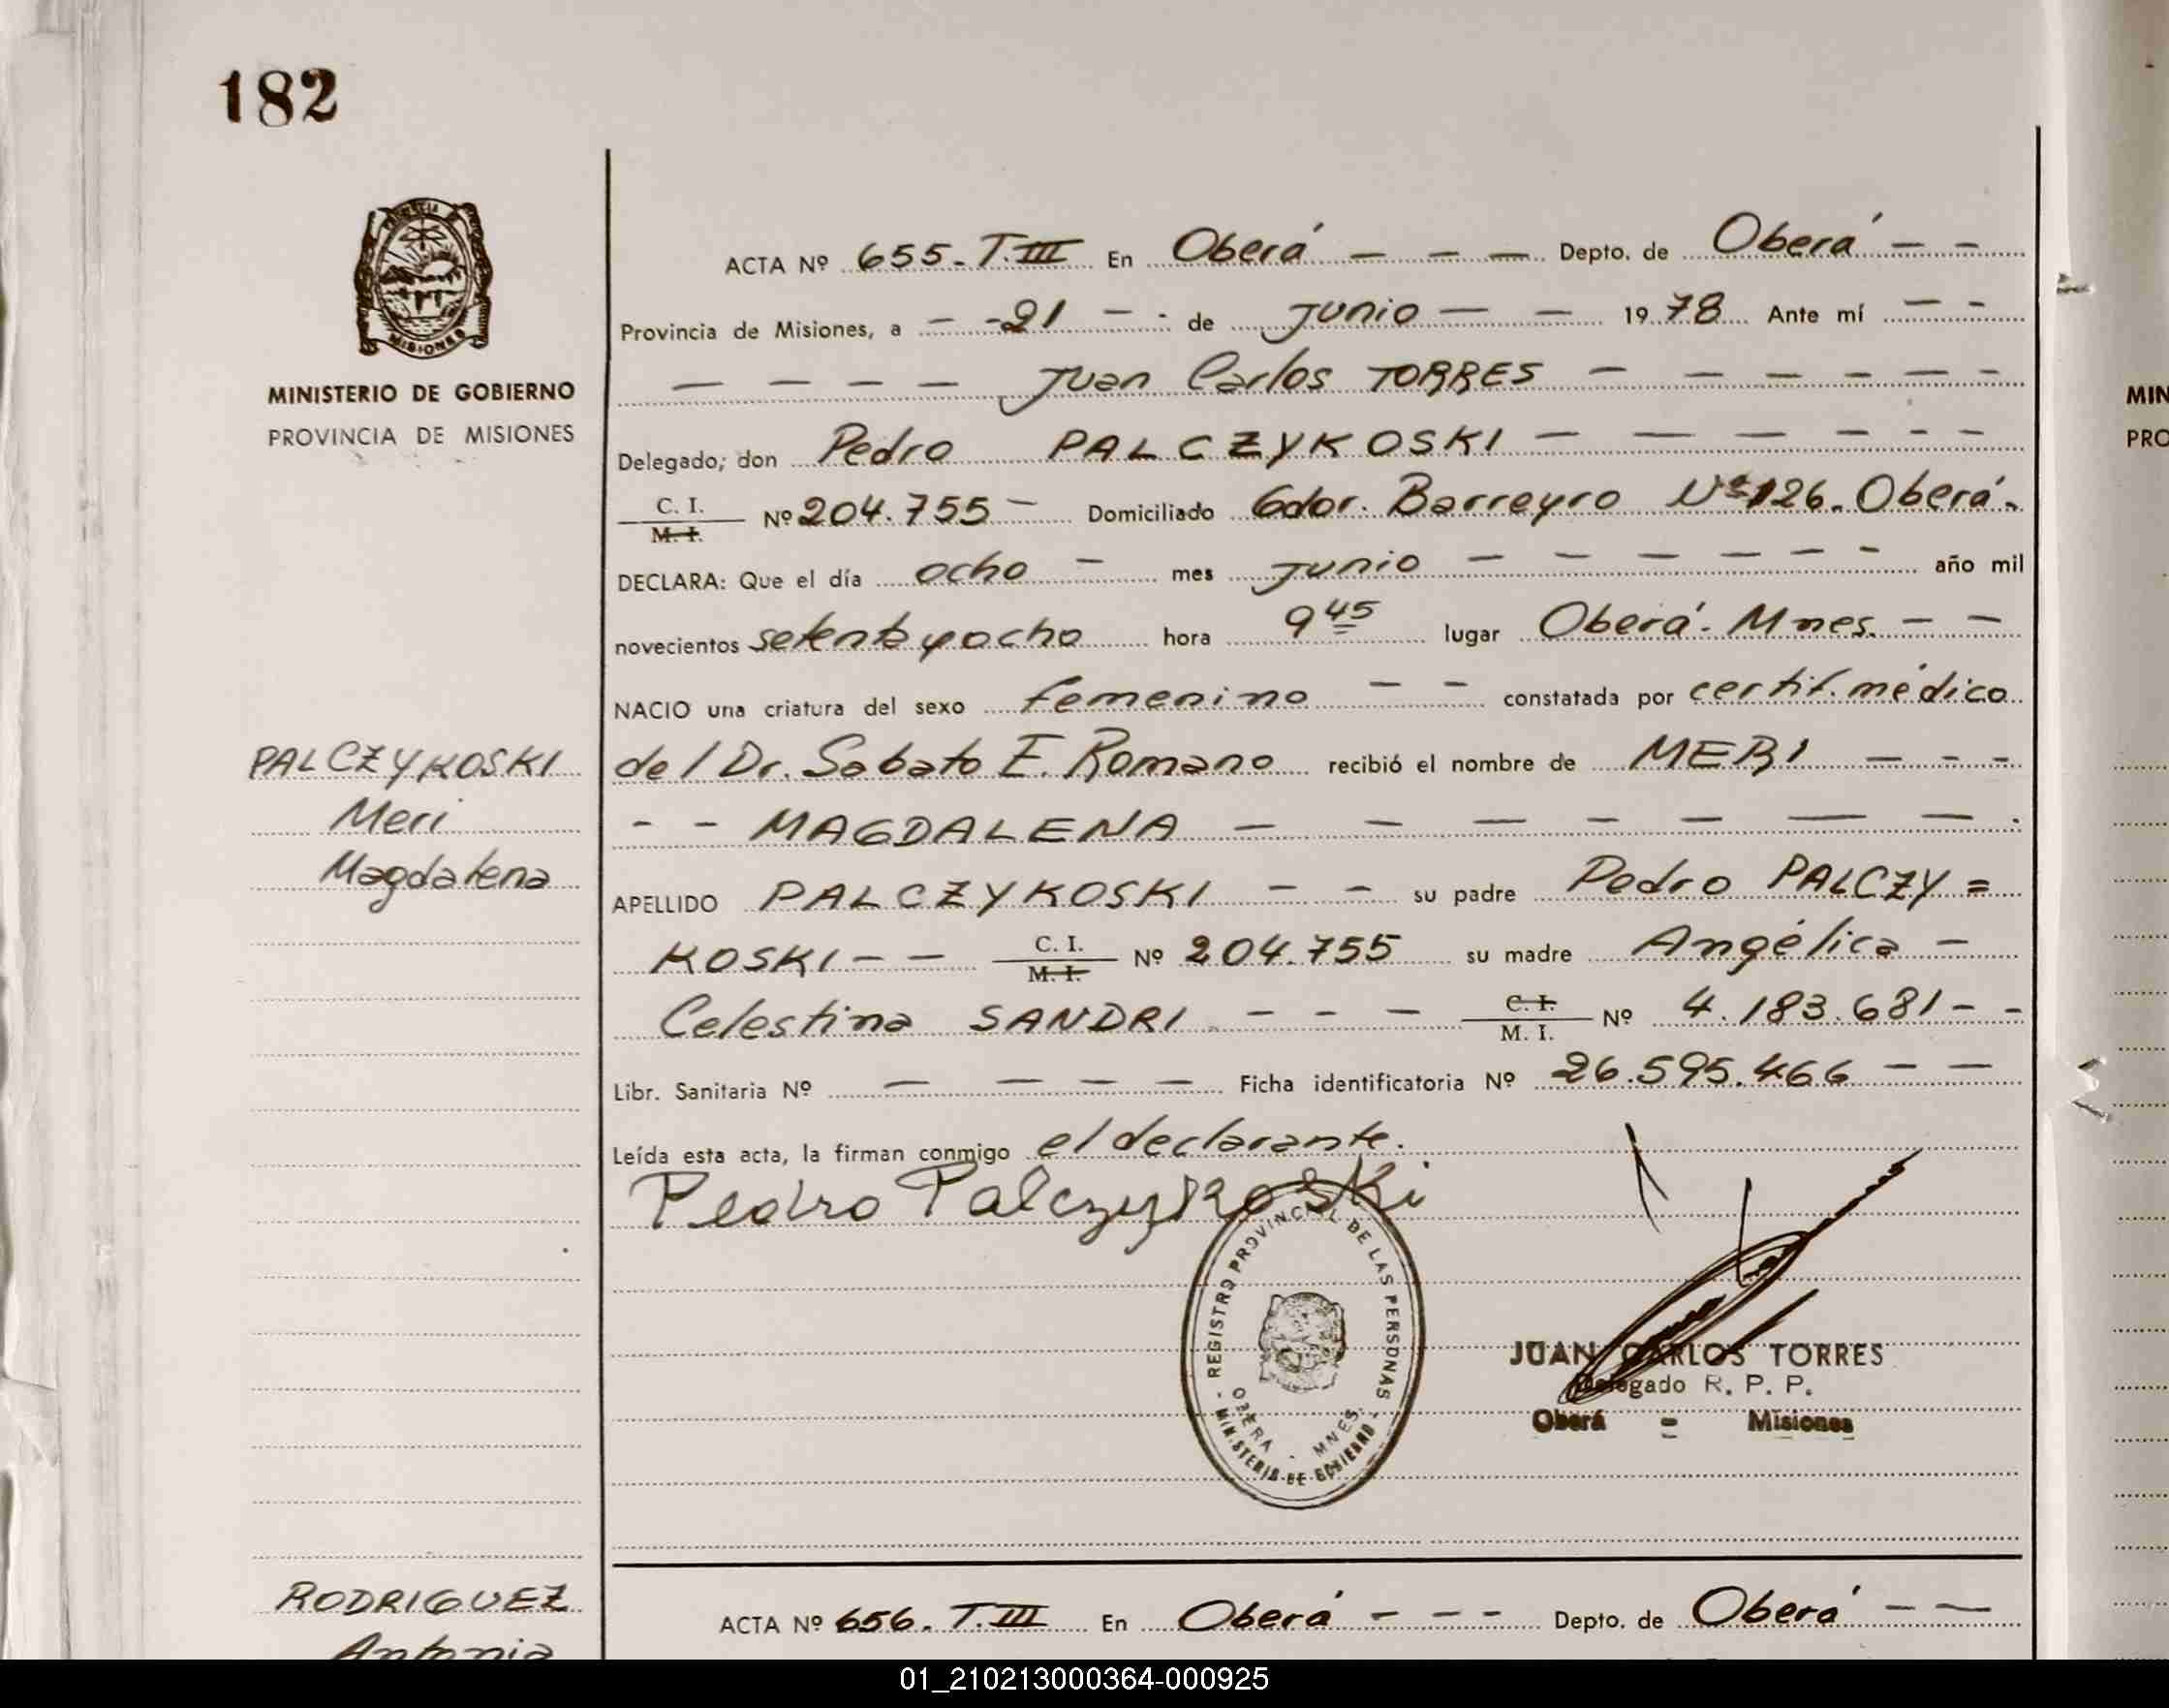 182
PROVINCIA DE
MISIONES
MINISTERIO DE GOBIERNO
PROVINCIA DE MISIONES
ACTA Nº 655. T. III En Oberá — — — Depto. de Oberá — —
Provincia de Misiones, a — - 21 — - de Junio — — 1978 Ante mí — -
— — — — Juan Carlos TORRES — — — — — — —
Delegado; don Pedro PALCZYKOSKI — — — — - -
C. I.
M. I. Nº 204.755 — Domiciliado Gdor. Barreyro Nº 126. Oberá.
DECLARA: Que el día ocho — mes junio — — — — — — año mil
novecientos setenta y ocho hora 9 45 lugar Oberá. Mnes. — —
NACIO una criatura del sexo femenino — — constatada por certif. médico
PALCZYKOSKI
Meri
Magdalena
del Dr. Sabato E. Romano recibió el nombre de MERI — - -
- - MAGDALENA — — — — — — —
APELLIDO PALCZYKOSKI — — su padre Pedro PALCZY=
KOSKI — — C. I.
M. I. Nº 204.755 su madre Angélica —
Celestina SANDRI - - - — C. I.
M. I. Nº 4.183.681 - -
Libr. Sanitaria Nº — — — — Ficha identificatoria Nº 26.595.466 — —
Leída esta acta, la firman conmigo el declarante.
Pedro Palczykoski
REGISTRO PROVINCIAL DE LAS PERSONAS
OBERA - MNES.
MINISTERIO DE GOBIERNO
JUAN CARLOS TORRES
Delegado R. P. P.
Oberá = Misiones
RODRIGUEZ
Antonia
ACTA Nº 656. T. III En Oberá — - - - Depto. de Oberá — —
MIN
PRO
01_210213000364-000925